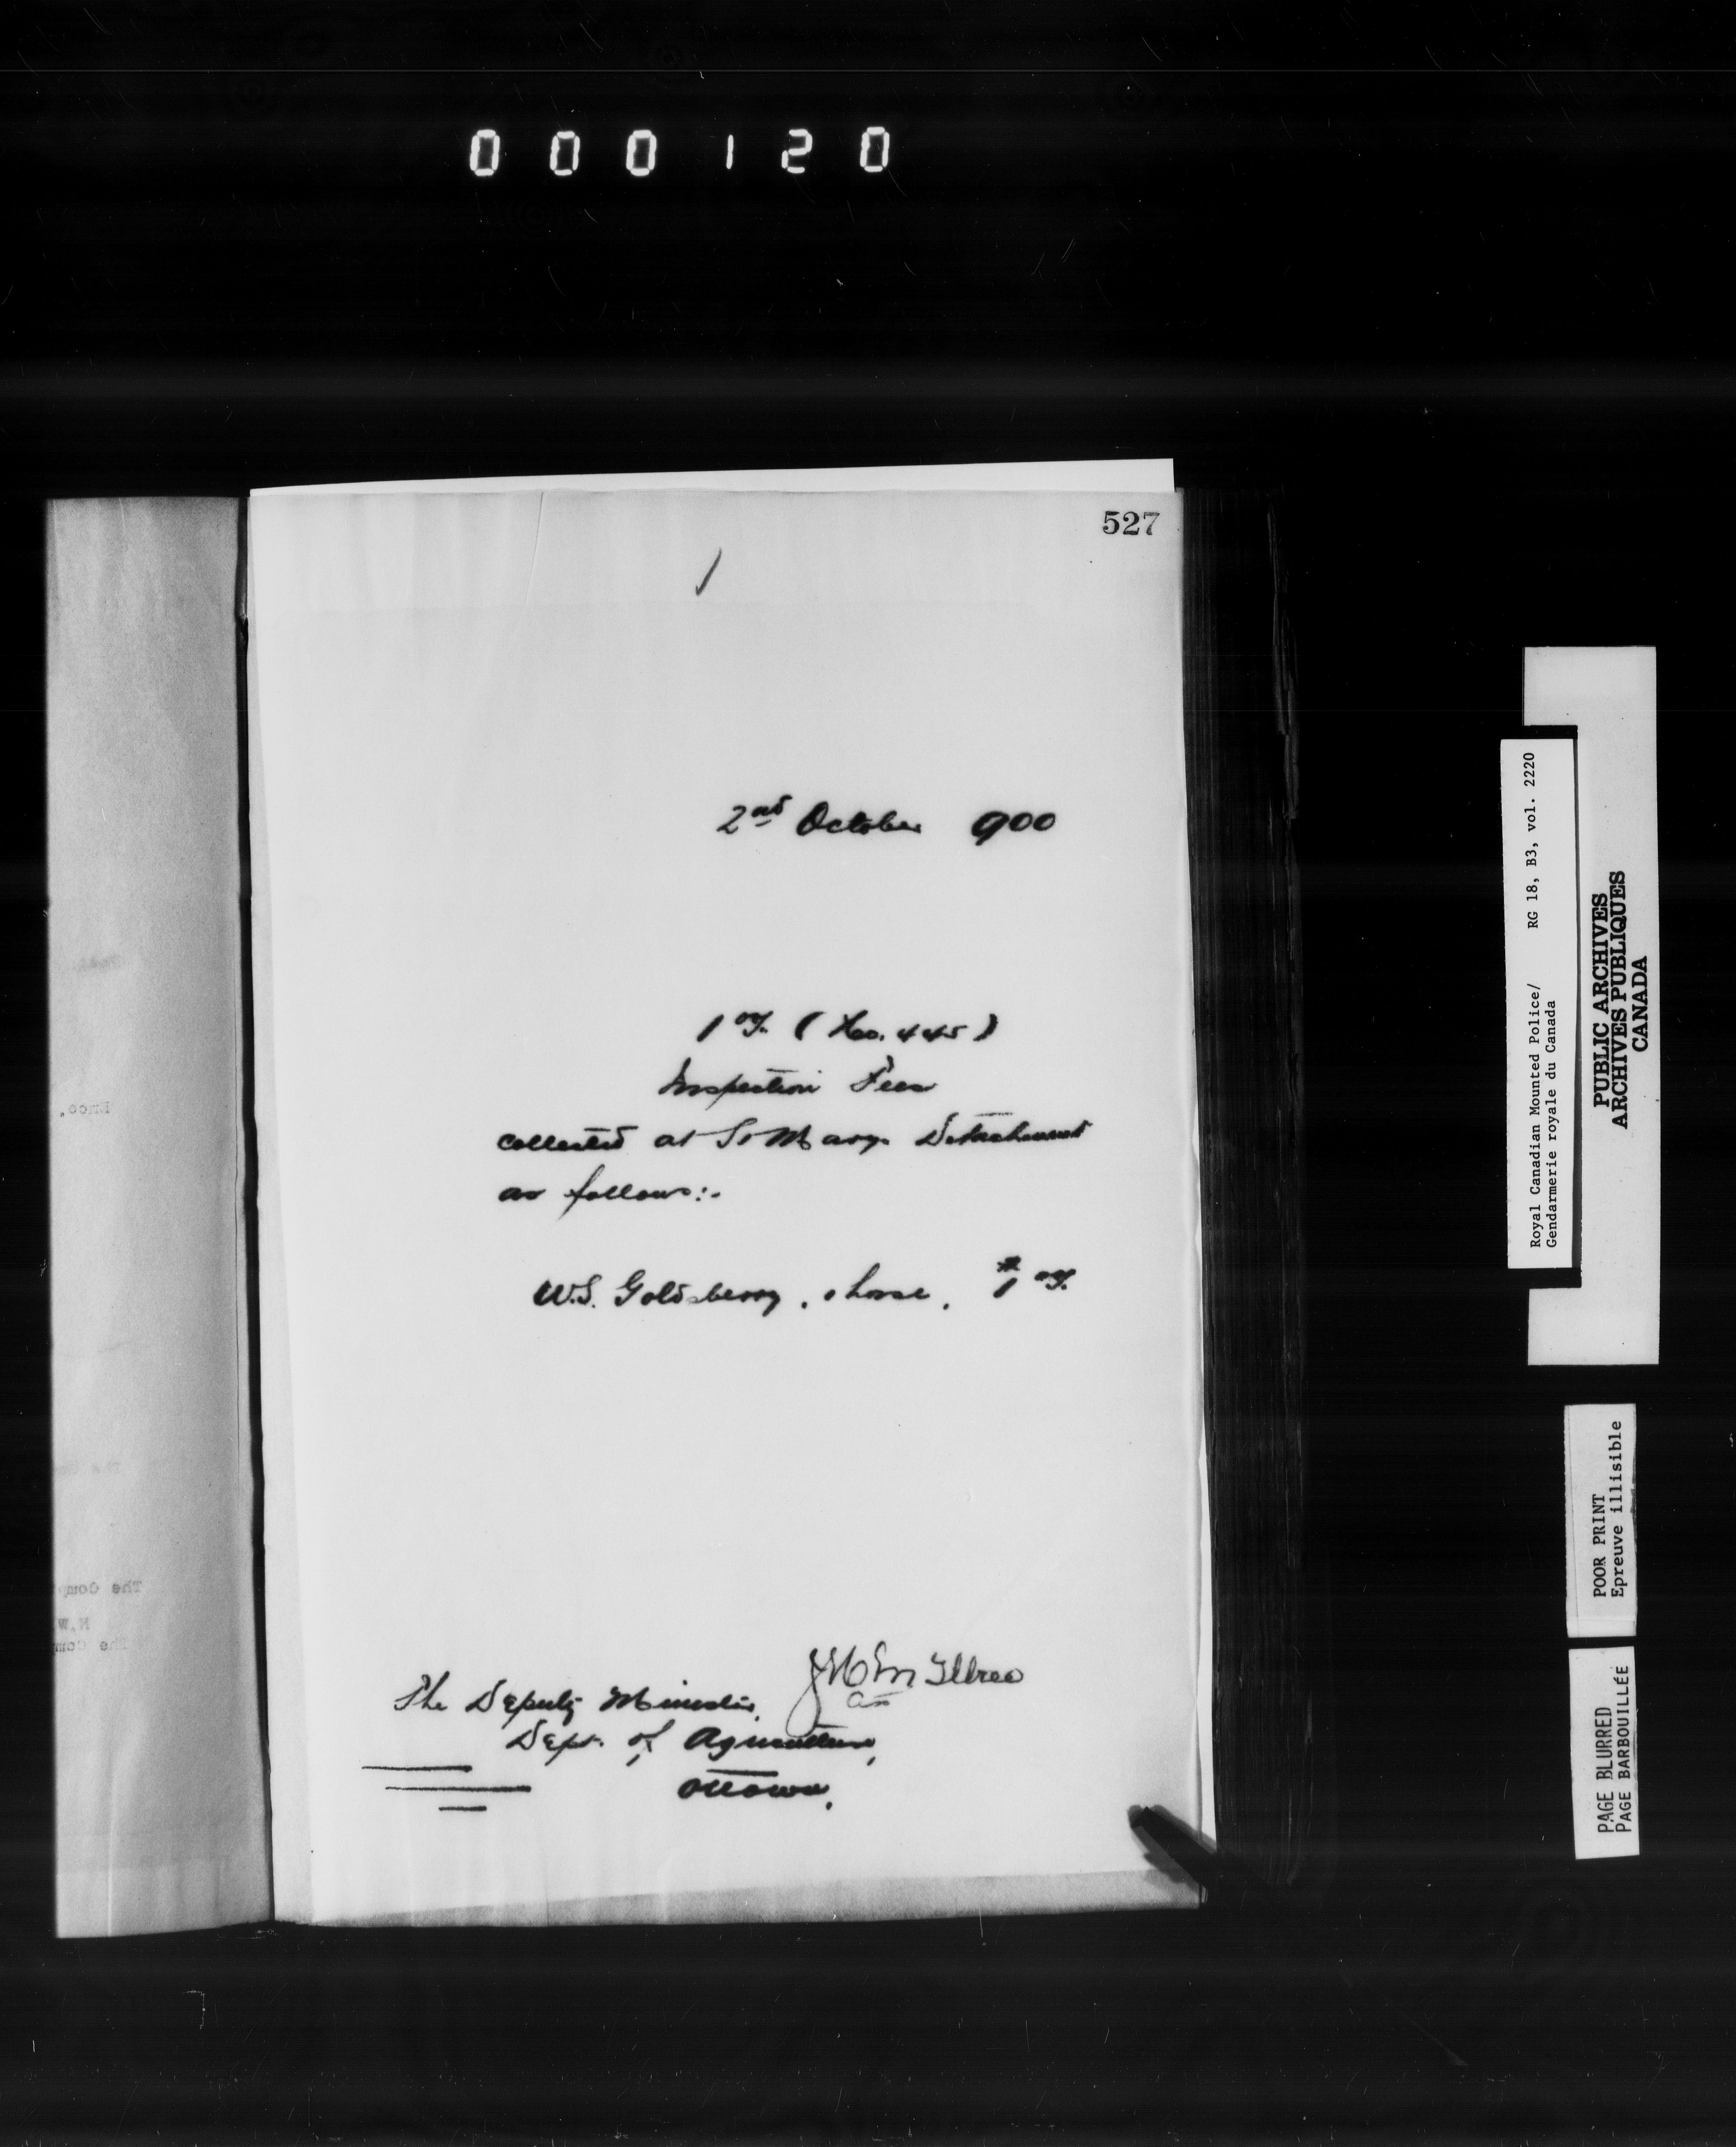 000120
527
/
2nd October 900
1 00/. (No. 445)
Inspection Fees
collected at St Marys Detachment
as follows:-
W.S. Goldsberry, 1 horse, $1 00/.
The Deputy Minister,
Dept. of Agriculture,
Ottawa.
Royal Canadian Mounted Police/ RG 18, B3, vol. 2220
Gendarmerie royale du Canada
PUBLIC ARCHIVES
ARCHIVES PUBLIQUES
CANADA
POOR PRINT
Epreuve illisible
PAGE BLURRED
PAGE BARBOUILLÉE
Encs.
The Comp
N.W
The Com